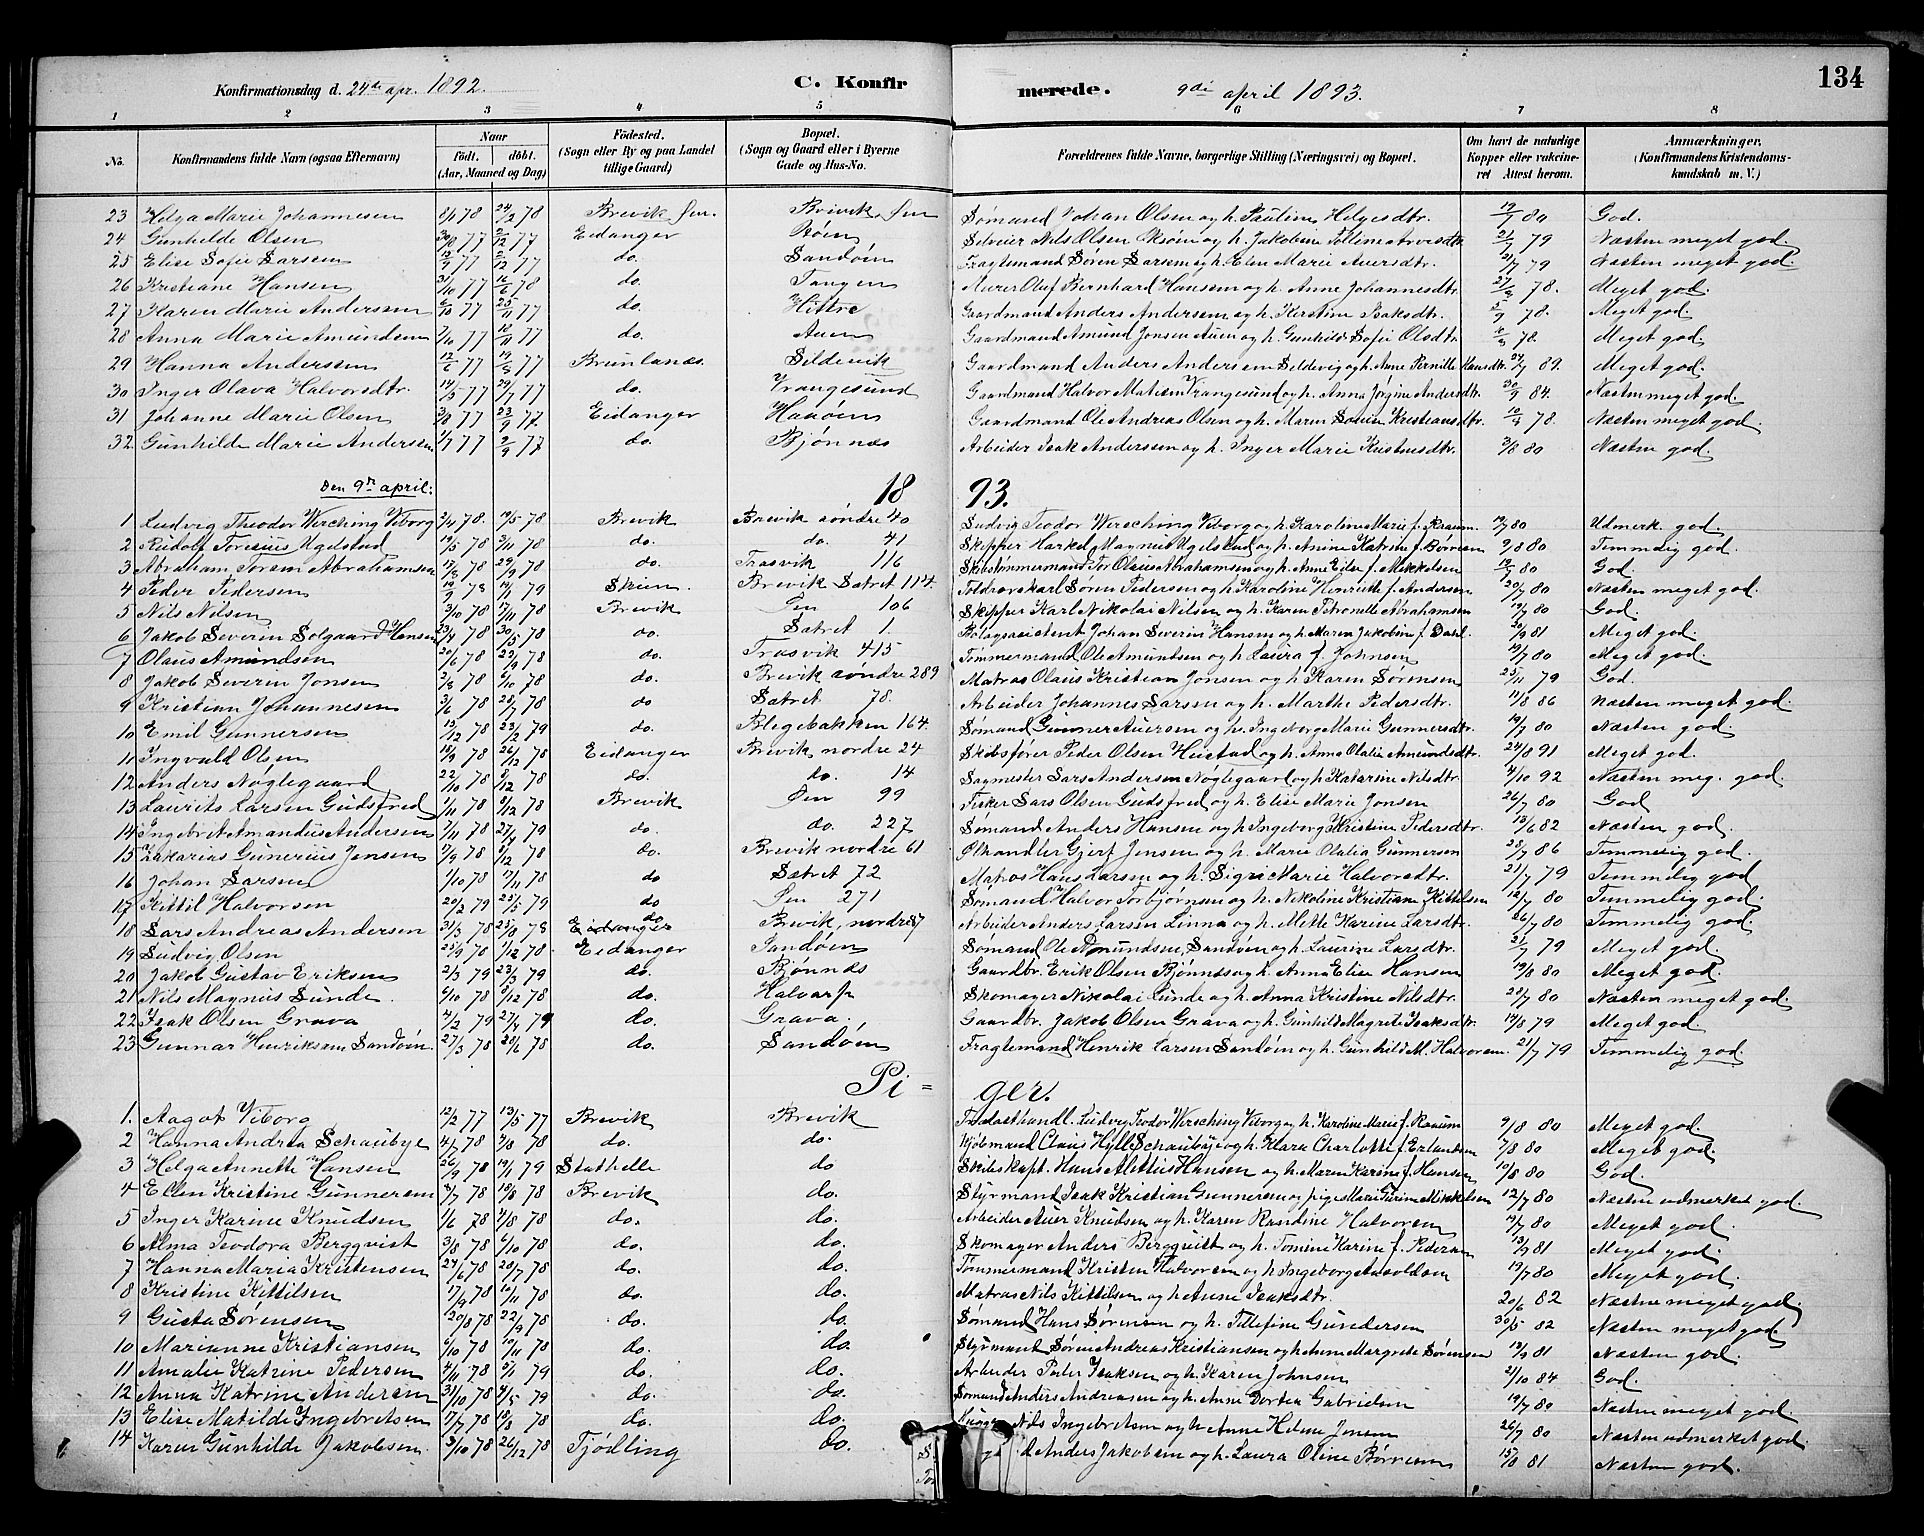 134
Konfirmationsdag d. 24de apr. 1892. C. Konfirmerede. 9di april 1893.
1 2 3 4 5 6 7 8
No. Konfirmandens fulde Navn (ogsaa Efternavn) Naar Födt. döbt. (Aar, Maaned og Dag) Födested. (Sogn eller By og paa Landet tillige Gaard) Bopæl. (Sogn og Gaard eller i Byerne Gade og Hus-No. Forældrenes fulde Navne, borgerlige Stilling (Næringsvei) og Bopæl. Om havt de naturlige Kopper eller vakcineret Attest herom. Anmærkninger. (Konfirmandens Kristendomskundskab m. V.)
23 Helga Marie Johannesen 8/1 78 24/2 78 Brevik Øen. Brevik Øen Sømand Johan Olsen og h. Pauline Helgesdtr. 80 God.
24 Gunhilde Olsen 77 2/12 77 Eidanger Nils Olsen og h. Jakobine 79 Næsten meget god.
25 Elise Sofie Larsen 77 2/12 77 do. Sandøen Fragtemand Søren Larsen og h. Elen Marie Auersdtr. 21/7 79 Næsten meget god.
26 Kristiane Hansen 31/10 77 78 do. Tangen Murer Oluf Bernhard Hansen og h. Anne Johannesdtr. 78. Meget god.
27 Karen Marie Anderssen 6/10 77 25/11 77 do. Hittre Gaardmand Anders Andersen og h. Kirstine Isaksdtr. 78. Meget god.
28 Anna Marie Amundsen 7/10 77 77 do. Auen Gaardmand Amund Jensen Auen og h. Gunhild Sofie Olsdtr. 78. Meget god.
29 Hanna Anderssen 12/6 77 77 Brunlanæs. Sildevik Gaardmand Anders Anderssen Sildevig og h. Anne Pernille Hansdtr. 24/7 89. Meget god.
30 Inger Olava Halvorsdtr. 14/5 77 29/7 77 do. Vrangesund Gaardmand Halvor Matisen Vrangesund og h. Anna Jørgine Andersdtr. 30/9 84. Næsten meget god.
31 Johanne Marie Olsen 3/8 77 23/9 77 Eidanger Haaøen Gaardmand Ole Andreas Olsen og h. Maren Sofie Kristiansdtr. 78. Næsten meget god.
32 Gunhilde Marie Andersen 1/7 77 2/9 77 do. Bjønnes Arbeider Isak Anderssen og h. Inger Marie Kristensdtr. 3/8 80 Næsten god.
Den 9de april: 1893.
1 Ludvig Theodor Wersching Viborg 2/4 78. 19/5 78 Brevik Brevik søndre 40 Ludvig Teodor Wersching Viborg og h. Karoline Marie f. Raaum. 19/7 80 Udmerk. god.
2 Rudolf Toresius Ugelstad 19/5 78 3/11 78 do. do. 41 Skipper Harkel Magnus Ugelstad og h. Anine Katrine f. Børresen 9/8 80 Temmelig god.
3 Abraham Torsen Abrahamsen 78 29/9 78 do. Trosvik 116 Skibstømmermand Tor Olaus Abrahamsen og h. Anne Elise f. Mikkelsen 80 God.
4 Peder Pedersen 78 19/1 79 Skien. Brevik Satret 114. Toldrorskarl Søren Pedersen og h. Karoline Henriette f. Andersen 20/7 80 Næsten meget god.
5 Nils Nilsen 3/10 78 17/11 78 Brevik Øen 106 Skipper Karl Nikolai Nilsen og h. Karen Petronelle Abrahamsen 19/7 80 God.
6 Jakob Severin Solgaard Hansen 23/4 78 30/5 78 do. Satret 1. Johan Severin Hansen og h. Maren Jakobine f. Dahl. 20/9 81 Meget god.
7 Olaus Amundsen 20/6 78 22/9 78 do. Trosvik 415 Tømmermand Ole Amundsen og h. Laura f. Johnsen 19/7 80 Meget god.
8 Jakob Severin Jonsen 2/8 78 6/10 78 do. Brevik søndre 289 Matros Olaus Kristian Jonsen og h. Karen Sørensen 25/11 79 God.
9 Kristian Johannesen 3/6 78 28/7 78 do Satret 78. Arbeider Johannes Larsen og h. Marthe Pedersdtr. 11/8 86 Næsten meget god.
10 Emil Gunnersen 15/12 78 23/2 79 do. Blegebakken 164. Sømand Gunner Auersen og h. Ingeborg Marie Gunnersdtr. 19/7 80 Næsten god.
11 Ingvald Olsen 19/9 78 26/12 78 Eidanger Brevik nordre 24 Skibsfører Peder Olsen Hustad og h. Anne Olalie Amundsdtr. 24/8 91 Meget god.
12 Anders Nøglegaard 22/10 78 8/12 78 do. do. 14 Sagmester Lars Andersen Nøglegaard og h. Katarine Nilsdtr. 4/10 92 Næsten meg. god.
13 Laurits Larsen Gudsfred 1/11 78 8/12 78 Brevik Øen 99 Fisker Lars Olsen Gudsfred og h. Elise Marie Jonsen 26/7 80 God
14 Ingebret Amandus Andersen 7/11 78 27/4 79 do. do. 227 Sømand Anders Hansen og h. Ingeborg Kristine Pedersdtr. 13/6 82 Næsten god.
15 Zakarias Gunerius Jensen 7/9 78 8/12 78 do. Brevik nordre 61 Ølhandler Gjert Jensen og h. Marie Olalia Gunnersen 28/7 86 Temmelig god.
16 Johan Larsen 1/10 78 17/11 78 do Satret 72 Matros Hans Larsen og h. Sigri Marie Halvorsdtr. 21/7 79 Temmelig god
17 Kittil Halvorsen 20/2 79 23/5 79 do Øen 271 Sømand Halvor Torbjørnsen og h. Nikoline Kristiane Kittilsen 12/7 80 Temmelig god
18 Lars Andreas Andersen 31/3 78 25/8 78 Eidanger do Brevik, nordre 87 Arbeider Anders Larsen Linna og h. Mette Karine Larsdtr. 26/7 80 Temmelig god
19 Ludvig Olsen 25/9 78 1/12 78 Eidanger Sandøen Sømand Ole Amundsen Sandøen og h. Laurine Larsdtr. 21/7 79 Meget god
20 Jakob Gustav Eriksen 2/3 79 23/3 79 do. Bjønnes Gaardbr. Erik Olsen Bjønnes og h. Anna Elise Hansen 19/8 80 Meget god.
21 Nils Magnus Sunde. 6/10 78 8/12 78 do. Halvarp Skomager Nikolai Sunde og h. Anna Kristine Nilsdtr. 28/7 80 Næsten meget god.
22 Isak Olsen Grava 4/2 79 27/4 79 do. Grava. Gaardbr. Jakob Olsen Grava og h. Gunhild Magrete Isaksdtr. 14/8 79 Meget god.
23 Gunnar Henriksen Sandøen 27/3 78 28/6 78 do. Sandøen Fragtemand Henrik Larsen Sandøen og h. Gunhild M. Halvorsen. 21/7 79 Temmelig god.
Pi=ger.
1. Aagot Viborg 12/2 77 13/5 77 Brevik Brevik Ludvig Teodor Wersching Viborg og h. Karoline Marie f. Raaum 9/8 80 Meget god.
2 Hanna Andrea Schaubye 4/7 78 78 do. do. Kjøbmand Claus Hylle Schaubye og h. Klara Charlotte f. Erlandsen 7/8 80 Meget god.
3 Helga Annette Hansen 26/9 78 19/1 79 Stathelle do Skibskapt. Hans Alettius Hansen og h. Maren Karine f. Hansen 10/8 80 God
4 Ellen Kristine Gunnersen 8/7 78 18/8 78 Brevik do. Styrmand Isak Kristian Gunnersen og pige Marie Mikkelsen 12/7 80 Næsten udmerket god.
5 Inger Karine Knudsen 1/6 78 4/8 78 do. do. Arbeider Auer Knudsen og h. Karen Rasidine Halvorsen 19/7 80 Meget god.
6 Alma Teodora Bergqvist 3/8 78 6/10 78 do. do. Skomager Anders Bergqvist og h. Tomine Karine f. Pedersen 13/9 81 Meget god.
7 Hanna Maria Kristensen 24/6 78 28/7 78 do. do. Tømmermand Kristen Halvorsen og h. Ingeborg Asvoldsen 19/7 80 Meget god.
8 Kristine Kittilsen 17/9 78 10/11 78 do. do. Matros Nils Kittilsen og h. Anne Isaksdtr. 20/6 82 Næsten meget god.
9 Gusta Sørensen 20/8 78 22/9 78 do. do. Sømand Hans Sørensen og h. Tillefine Gundersen 30/5 82 Næsten meget god.
10 Marianne Kristiansen 6/10 78 10/11 78 do. do. Styrmand Søren Andreas Kristiansen og h. Anne Margrete Sørensen 19/9 81 Næsten god.
11 Amalie Katrine Pedersen 4/11 78 5/1 79 do. do. Arbeider Peder Isaksen og h. Karen Johnsen 21/10 84 God.
12 Anna Katrine Andersen 31/10 78 4/5 79 do. do. Sømand Anders Andreasen og h. Anne Dortea Gabrielsen 19/7 80 Næsten meget god.
13 Elise Matilde Ingebretsen 17/7 78 18/8 78 do. do. Nils Ingebretsen og h. Anne Helene Jensen 26/7 80 Næsten udmerket god.
14 Karen Gunhilde Jakobsen. 3/10 78 26/12 78 Tjødling do. Anders Jakobsen og h. Laura Oline Børresen 15/8 81 Næsten god.